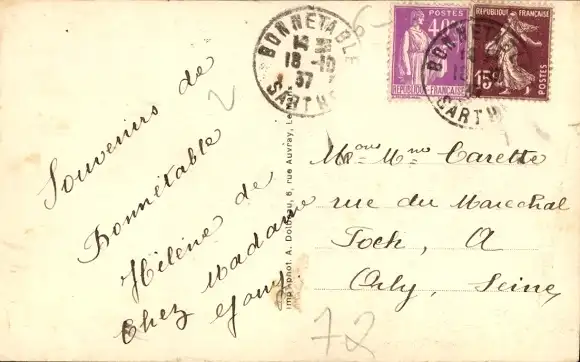 BONNETABLE
18-10
37
SARTHE
POSTES
40c
REPUBLIQUE-FRANÇAISE
REPUBLIQUE FRANÇAISE
15c
POSTES
BONNETABLE
SARTHE
Souvenirs de
Bonnétable
Hélène de
Chez Madame
Imp. Aphot. A. Dolbeau, 8, rue Auvray, Le
Mr ou Mme Carette
rue du Marechal
Foch, A
Orly, Seine,
78
2